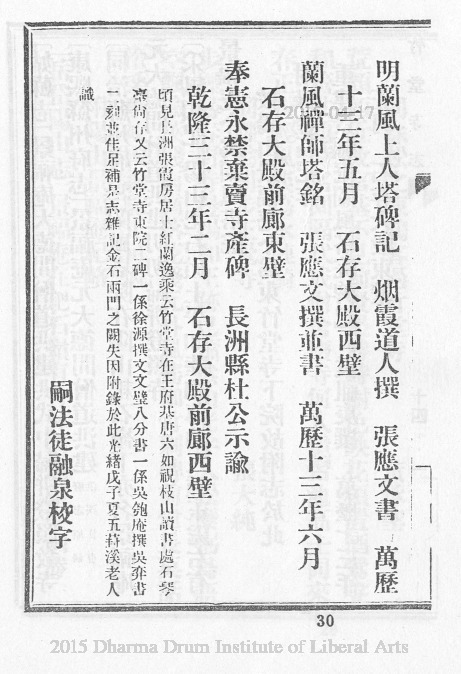 明蘭風上人塔碑記　烟霞道人撰　張應文書　萬歷
十三年五月　石存大殿西壁
蘭風禪師塔銘　張應文撰並書　萬歷十三年六月
石存大殿前廊東壁
奉憲永禁棄賣寺產碑　長洲縣杜公示諭
乾隆三十三年二月　石存大殿前廊西壁
頃見長洲張霞房居士紅蘭逸乘云竹堂寺在王府基唐六如祝枝山讀書處石琴
臺尚存又云竹堂寺東院二碑一係徐源撰文文璧八分書一係吳匏庵撰吳奕書
一經並佳足補是志雜記金石兩門之闕失因附錄於此光緒戊子夏五葑溪老人
識
嗣法徒融泉校字
30
2015 Dharma Drum Institute of Liberal Arts